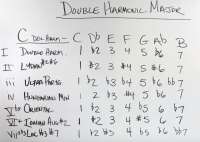 DOUBLE HARMONIC MAJOR
C DBL HARM - C Db E F G Ab B
I DOUBLE HARM. 1 b2 3 4 5 b6 7
II LYDIAN #2 #6 1 #2 3 #4 5 #6 7
iii ULTRA PHRYG 1 b2 b3 b4 5 b6 bb7
iv HUNGARIAN MIN 1 2 b3 #4 5 b6 7
V ORIENTAL 1 b2 3 4 b5 6 b7
VI+ IONIAN AUG #2 1 #2 3 4 #5 6 7
vii LOC bb3 bb7 1 b2 bb3 4 b5 b6 bb7